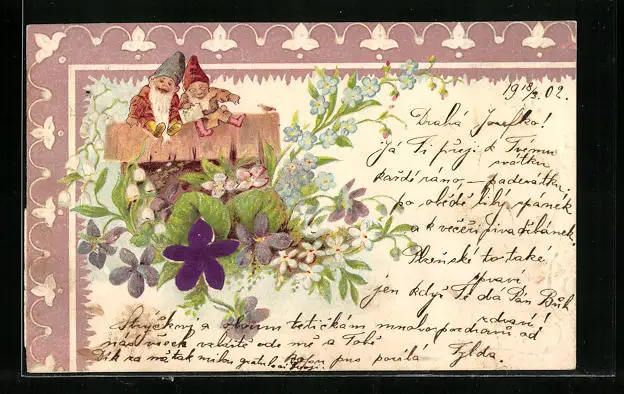 19 18/3 02.
Drahá Josefko!
Já Ti přeji k Tvému
svátku
každé ráno – padesátku.
po obědě libý spánek
a k večeři piva džbánek.
Plzeňské to také
spraví
jen když Ti dá Pán Bůh
zdraví!
Strýčkovi a tetičkám mnoho pozdravů od
nás všech zvláště ode mě a
Dík za tak milou gratulaci posílá